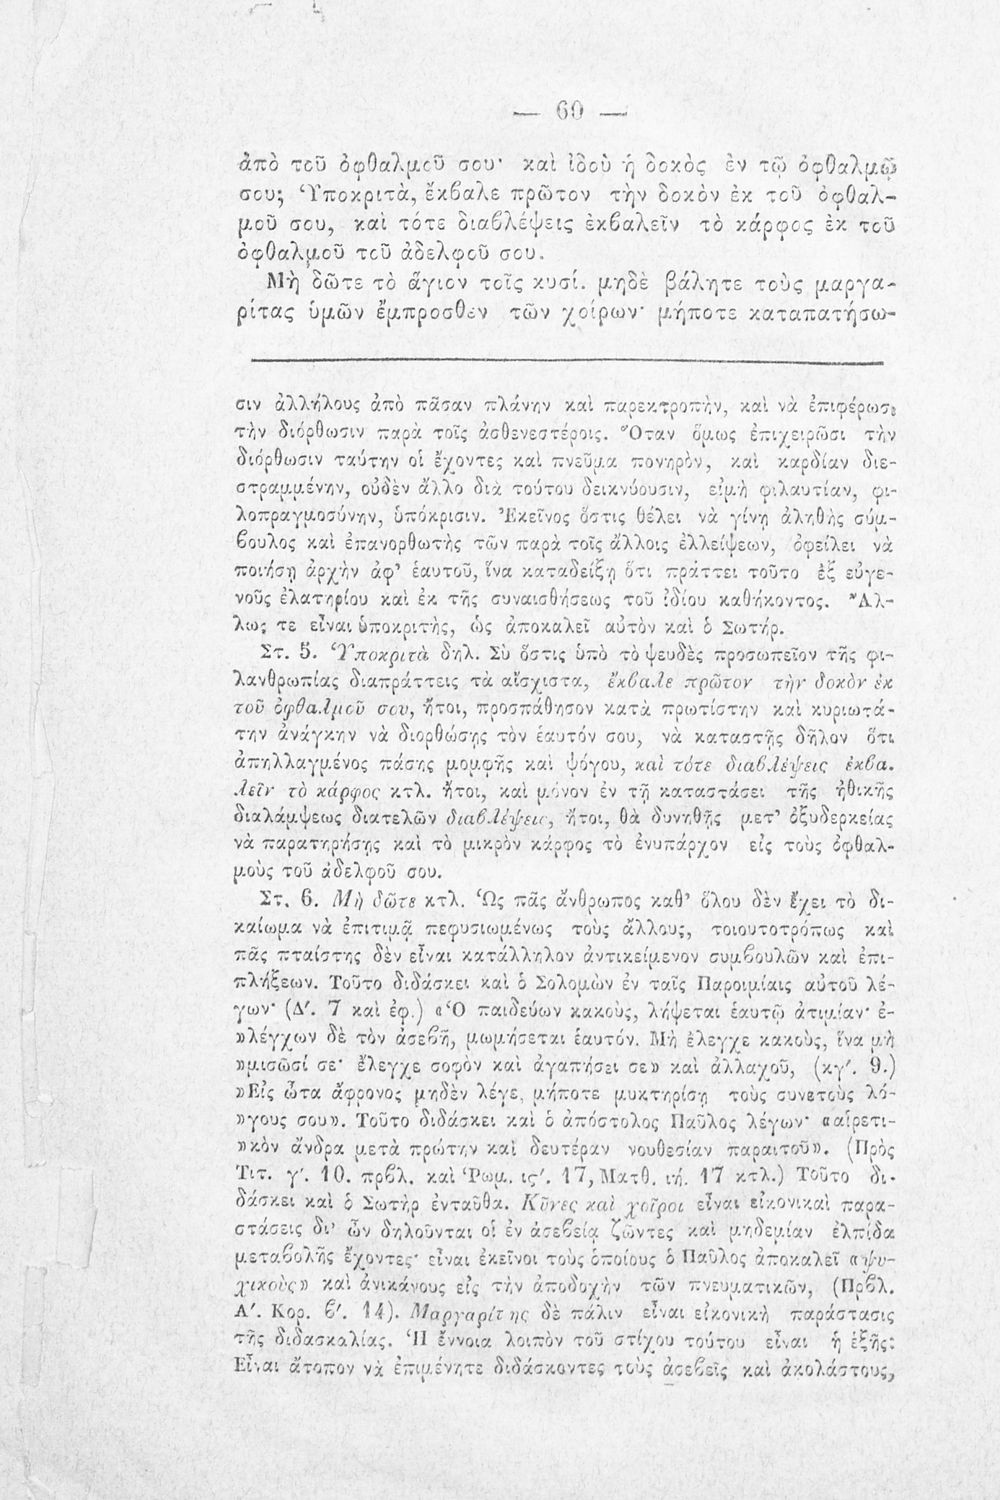 — 60 —
ἀπὸ τοῦ ὀφθαλμοῦ σου· καὶ ἰδοὺ ἡ δοκὸς ἐν τῷ ὀφθαλμῷ
σου; Ὑποκριτὰ, ἔκβαλε πρῶτον τὴν δοκὸν ἐκ τοῦ ὀφθαλ-
μοῦ σου, καὶ τότε διαβλέψεις ἐκβαλεῖν τὸ κάρφος ἐκ τοῦ
ὀφθαλμοῦ τοῦ ἀδελφοῦ σου.
Μὴ δῶτε τὸ ἅγιον τοῖς κυσί. μηδὲ βάλητε τοὺς μαργα-
ρίτας ὑμῶν ἔμπροσθεν τῶν χοίρων· μήποτε καταπατήσω-
σιν ἀλλήλους ἀπὸ πᾶσαν πλάνην καὶ παρεκτροπὴν, καὶ νὰ ἐπιφέρωσι
τὴν διόρθωσιν παρὰ τοῖς ἀσθενεστέροις. Ὅταν ὅμως ἐπιχειρῶσι τὴν
διόρθωσιν ταύτην οἱ ἔχοντες καὶ πνεῦμα πονηρὸν, καὶ καρδίαν διε-
στραμμένην, οὐδὲν ἄλλο διὰ τούτου δεικνύουσιν, εἰμὴ φιλαυτίαν, φι-
λοπραγμοσύνην, ὑπόκρισιν. Ἐκεῖνος ὅστις θέλει νὰ γίνῃ ἀληθὴς σύμ-
βουλος καὶ ἐπανορθωτὴς τῶν παρὰ τοῖς ἄλλοις ἐλλείψεων, ὀφείλει νὰ
ποιήσῃ ἀρχὴν ἀφ' ἑαυτοῦ, ἵνα καταδείξῃ ὅτι πράττει τοῦτο ἐξ εὐγε-
νοῦς ἐλατηρίου καὶ ἐκ τῆς συναισθήσεως τοῦ ἰδίου καθήκοντος. Ἄλ-
λως τε εἶναι ὑποκριτὴς, ὡς ἀποκαλεῖ αὐτὸν καὶ ὁ Σωτήρ.
Στ. 5. Ὑποκριτὰ δηλ. Σὺ ὅστις ὑπὸ τὸ ψευδὲς προσωπεῖον τῆς φι-
λανθρωπίας διαπράττεις τὰ αἴσχιστα, ἔκβαλε πρῶτον τὴν δοκὸν ἐκ
τοῦ ὀφθαλμοῦ σου, ἤτοι, προσπάθησον κατὰ πρωτίστην καὶ κυριωτά-
την ἀνάγκην νὰ διορθώσῃς τὸν ἑαυτόν σου, νὰ καταστῇς δῆλον ὅτι
ἀπηλλαγμένος πάσης μομφῆς καὶ ψόγου, καὶ τότε διαβλέψεις ἐκβα-
λεῖν τὸ κάρφος κτλ. ἤτοι, καὶ μόνον ἐν τῇ καταστάσει τῆς ἠθικῆς
διαλάμψεως διατελῶν διαβλέψεις, ἤτοι, θὰ δυνηθῇς μετ' ὀξυδερκείας
νὰ παρατηρήσῃς καὶ τὸ μικρὸν κάρφος τὸ ἐνυπάρχον εἰς τοὺς ὀφθαλ-
μοὺς τοῦ ἀδελφοῦ σου.
Στ. 6. Μὴ δῶτε κτλ. Ὡς πᾶς ἄνθρωπος καθ' ὅλου δὲν ἔχει τὸ δι-
καίωμα νὰ ἐπιτιμᾷ πεφυσιωμένως τοὺς ἄλλους, τοιουτοτρόπως καὶ
πᾶς πταίστης δὲν εἶναι κατάλληλον ἀντικείμενον συμβουλῶν καὶ ἐπι-
πλήξεων. Τοῦτο διδάσκει καὶ ὁ Σολομὼν ἐν ταῖς Παροιμίαις αὐτοῦ λέ-
γων· (Δ'. 7 καὶ ἐφ.) «Ὁ παιδεύων κακοὺς, λήψεται ἑαυτῷ ἀτιμίαν· ἐ-
»λέγχων δὲ τὸν ἀσεβῆ, μωμήσεται ἑαυτόν. Μὴ ἔλεγχε κακοὺς, ἵνα μὴ
»μισῶσί σε· ἔλεγχε σοφὸν καὶ ἀγαπήσει σε» καὶ ἀλλαχοῦ, (κγ'. 9.)
»Εἰς ὦτα ἄφρονος μηδὲν λέγε, μήποτε μυκτηρίσῃ τοὺς συνετοὺς λό-
»γους σου». Τοῦτο διδάσκει καὶ ὁ ἀπόστολος Παῦλος λέγων· «αἱρετι-
»κὸν ἄνδρα μετὰ πρώτην καὶ δευτέραν νουθεσίαν παραιτοῦ». (Πρὸς
Τιτ. γ'. 10. πρβλ. καὶ Ῥωμ. ις'. 17, Ματθ. ιή. 17 κτλ.) Τοῦτο δι-
δάσκει καὶ ὁ Σωτὴρ ἐνταῦθα. Κῦνες καὶ χοῖροι εἶναι εἰκονικαὶ παρα-
στάσεις δι' ὧν δηλοῦνται οἱ ἐν ἀσεβείᾳ ζῶντες καὶ μηδεμίαν ἐλπίδα
μεταβολῆς ἔχοντες· εἶναι ἐκεῖνοι τοὺς ὁποίους ὁ Παῦλος ἀποκαλεῖ «ψυ-
χικοὺς» καὶ ἀνικάνους εἰς τὴν ἀποδοχὴν τῶν πνευματικῶν, (Πρβλ.
Α'. Κορ. β'. 14). Μαργαρίτης δὲ πάλιν εἶναι εἰκονικὴ παράστασις
τῆς διδασκαλίας. Ἡ ἔννοια λοιπὸν τοῦ στίχου τούτου εἶναι ἡ ἑξῆς:
Εἶναι ἄτοπον νὰ ἐπιμένητε διδάσκοντες τοὺς ἀσεβεῖς καὶ ἀκολάστους,